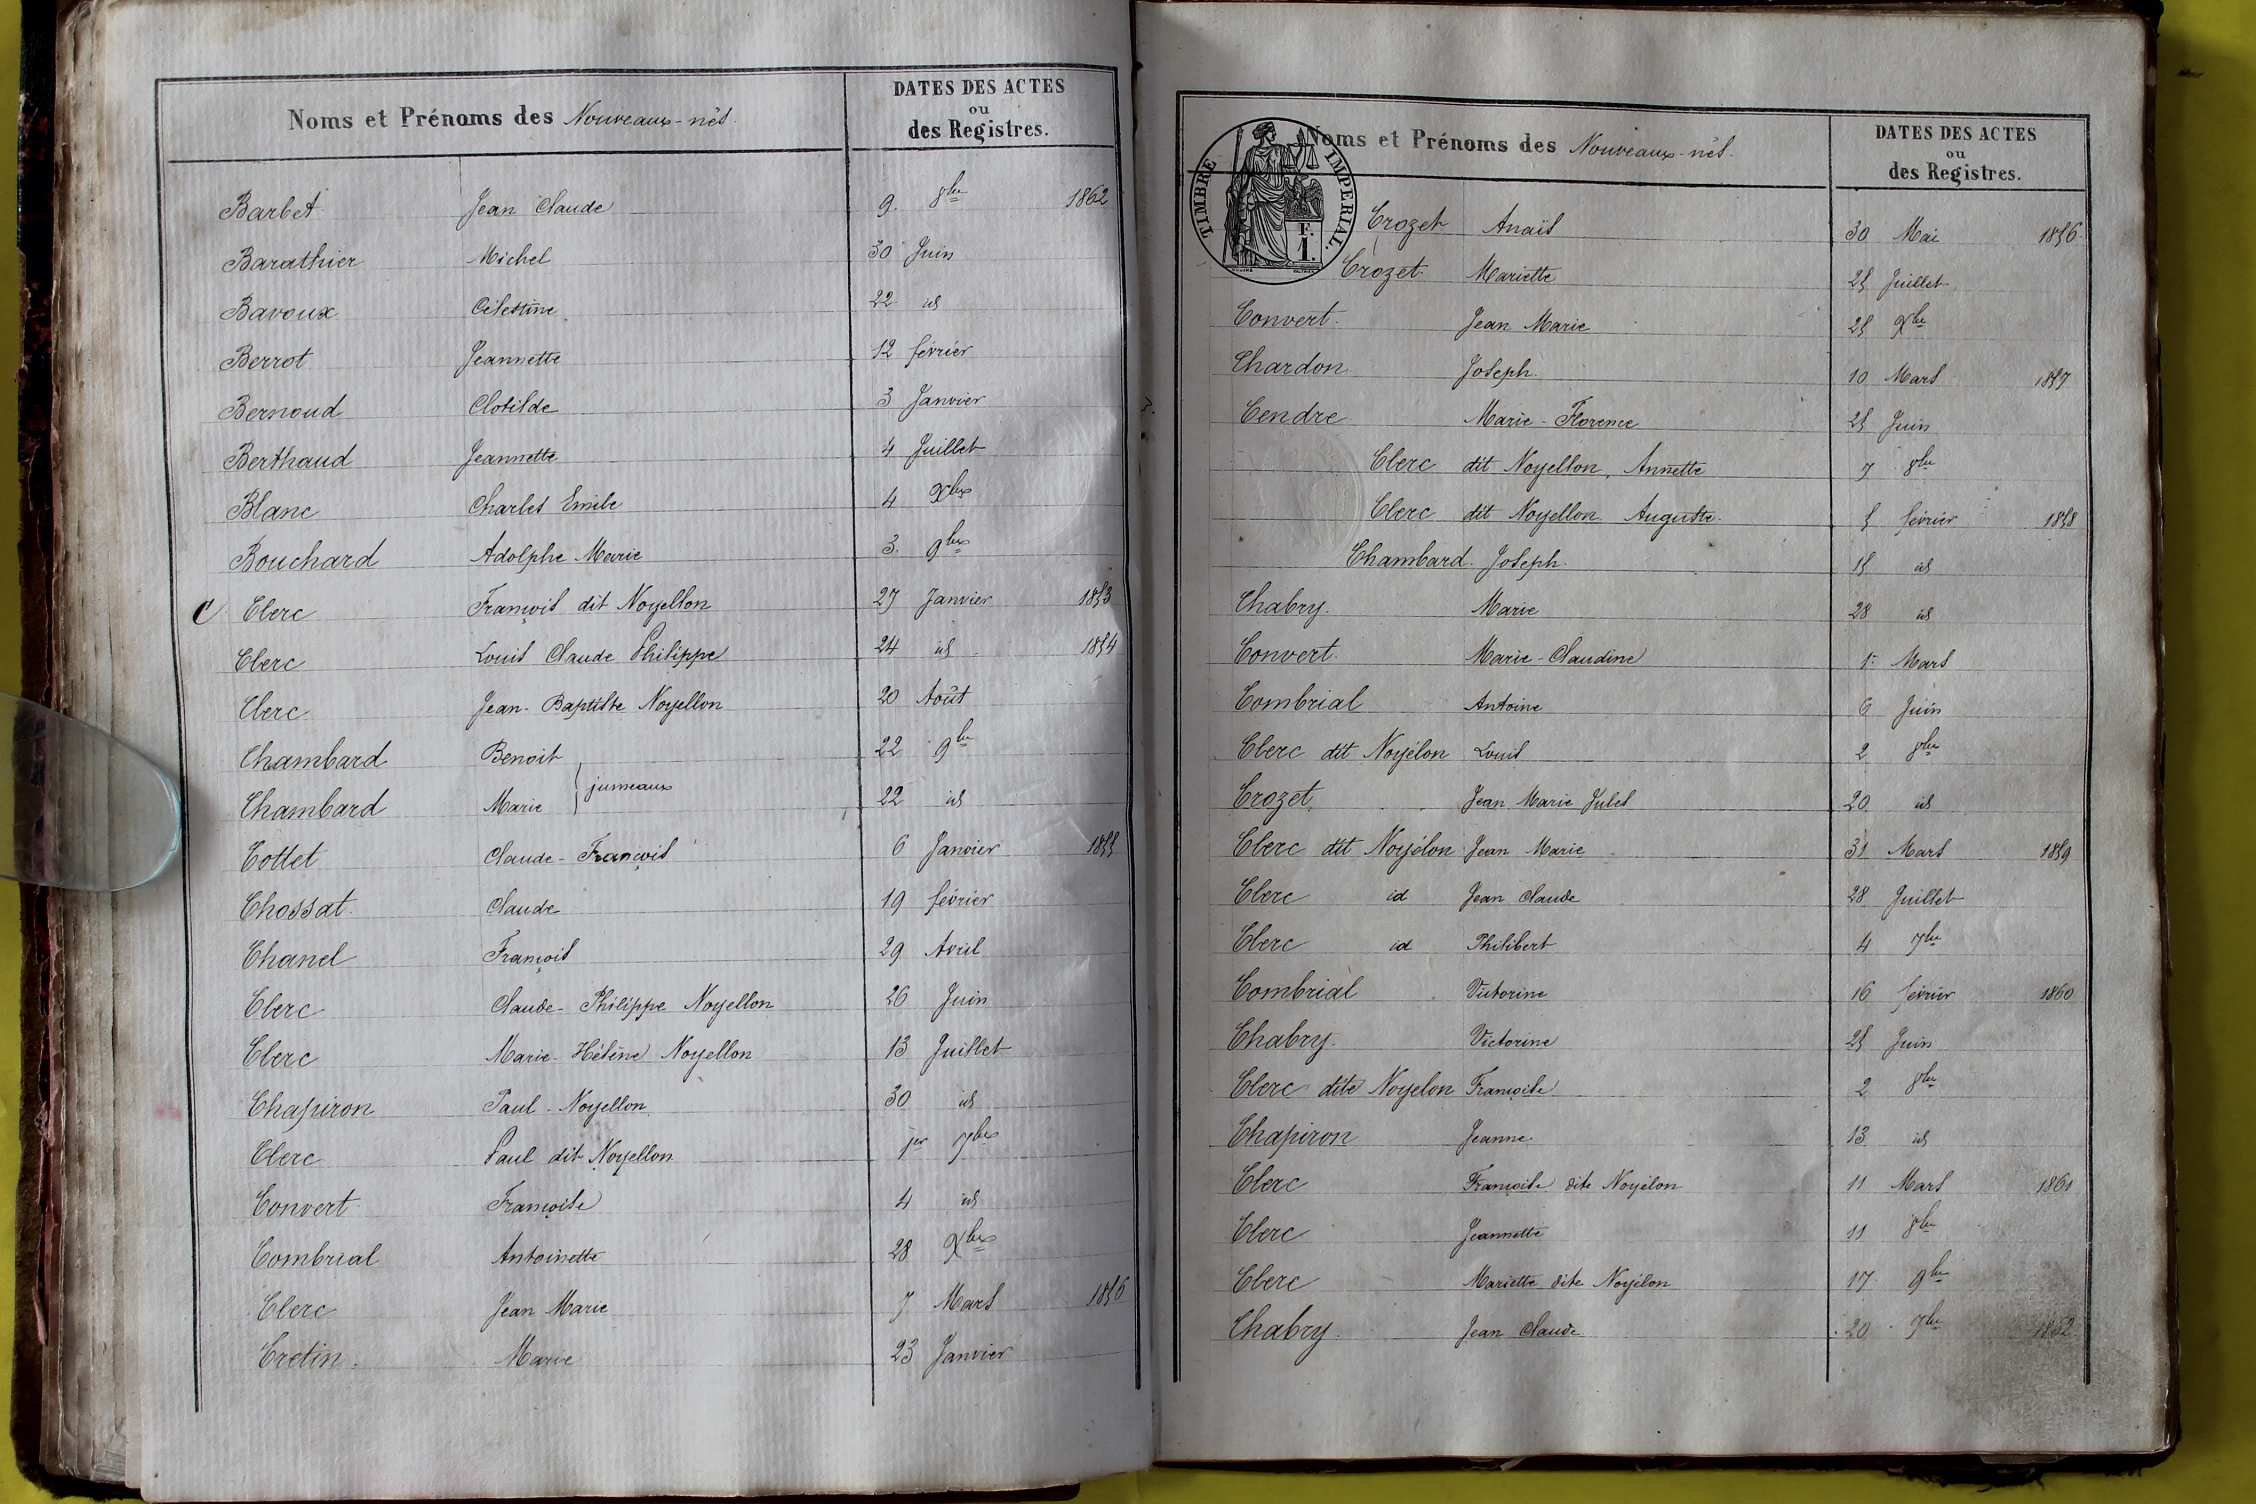 Noms et Prénoms des Nouveaux-nés. DATES DES ACTES ou des Registres.
Barbet Jean Claude 9. 8bre 1862
Barathier Michel 30 Juin
Bavoux Célestine 22 id
Berrot Jeannette 12 février
Bernoud Clotilde 3 Janvier
Berthaud Jeannette 4 Juillet
Blanc Charles Emile 4 Xbre
Bouchard Adolphe Marie 3. 9bre
C Clerc François dit Noyellon 27 Janvier 1853
Clerc Louis Claude Philippe 24 id 1854
Clerc Jean-Baptiste Noyellon 20 Août
Chambard Benoit 22 9bre
jumeaux
Chambard Marie 22 id
Cottet Claude-François 6 Janvier 1855
Chossat Claude 19 février
Chanel François 29 Avril
Clerc Claude-Philippe Noyellon 26 Juin
Clerc Marie-Hélène Noyellon 13 Juillet
Chapiron Paul-Noyellon 30 id
Clerc Paul dit Noyellon 1er 7bre
Convert Françoise 4 id
Combrial Antoinette 28 Xbre
Clerc Jean Marie 7 Mars 1856
Cretin. Marie 23 Janvier
TIMBRE IMPERIAL.
F. 1.
Noms et Prénoms des Nouveaux-nés. DATES DES ACTES ou des Registres.
Crozet Anaïs 30 Mai 1856
Crozet Mariette 25 Juillet
Convert. Jean Marie 25 Xbre
Chardon Joseph. 10 Mars 1857
Cendre Marie-Florence 25 Juin
Clerc dit Noyellon, Annette 7 8bre
Clerc dit Noyellon Auguste. 5 février 1858
Chambard. Joseph. 15 id
Chabry. Marie 28 id
Convert. Marie-Claudine 1er Mars
Combrial Antoine 6 Juin
Clerc dit Noyélon Louis 2 8bre
Crozet. Jean Marie Jules 20 id
Clerc dit Noyélon Jean Marie 31 Mars 1859
Clerc id Jean Claude 28 Juillet
Clerc id Philibert 4 7bre
Combrial Victorine 16 février 1860
Chabry. Victorine 25 Juin
Clerc dite Noyelon Françoise 2 8bre
Chapiron Jeanne. 13 id
Clerc Françoise dite Noyélon 11 Mars 1861
Clerc Jeannette 11 8bre
Clerc Mariette dite Noyélon 17 9bre
Chabry. Jean Claude 20 7bre 1862